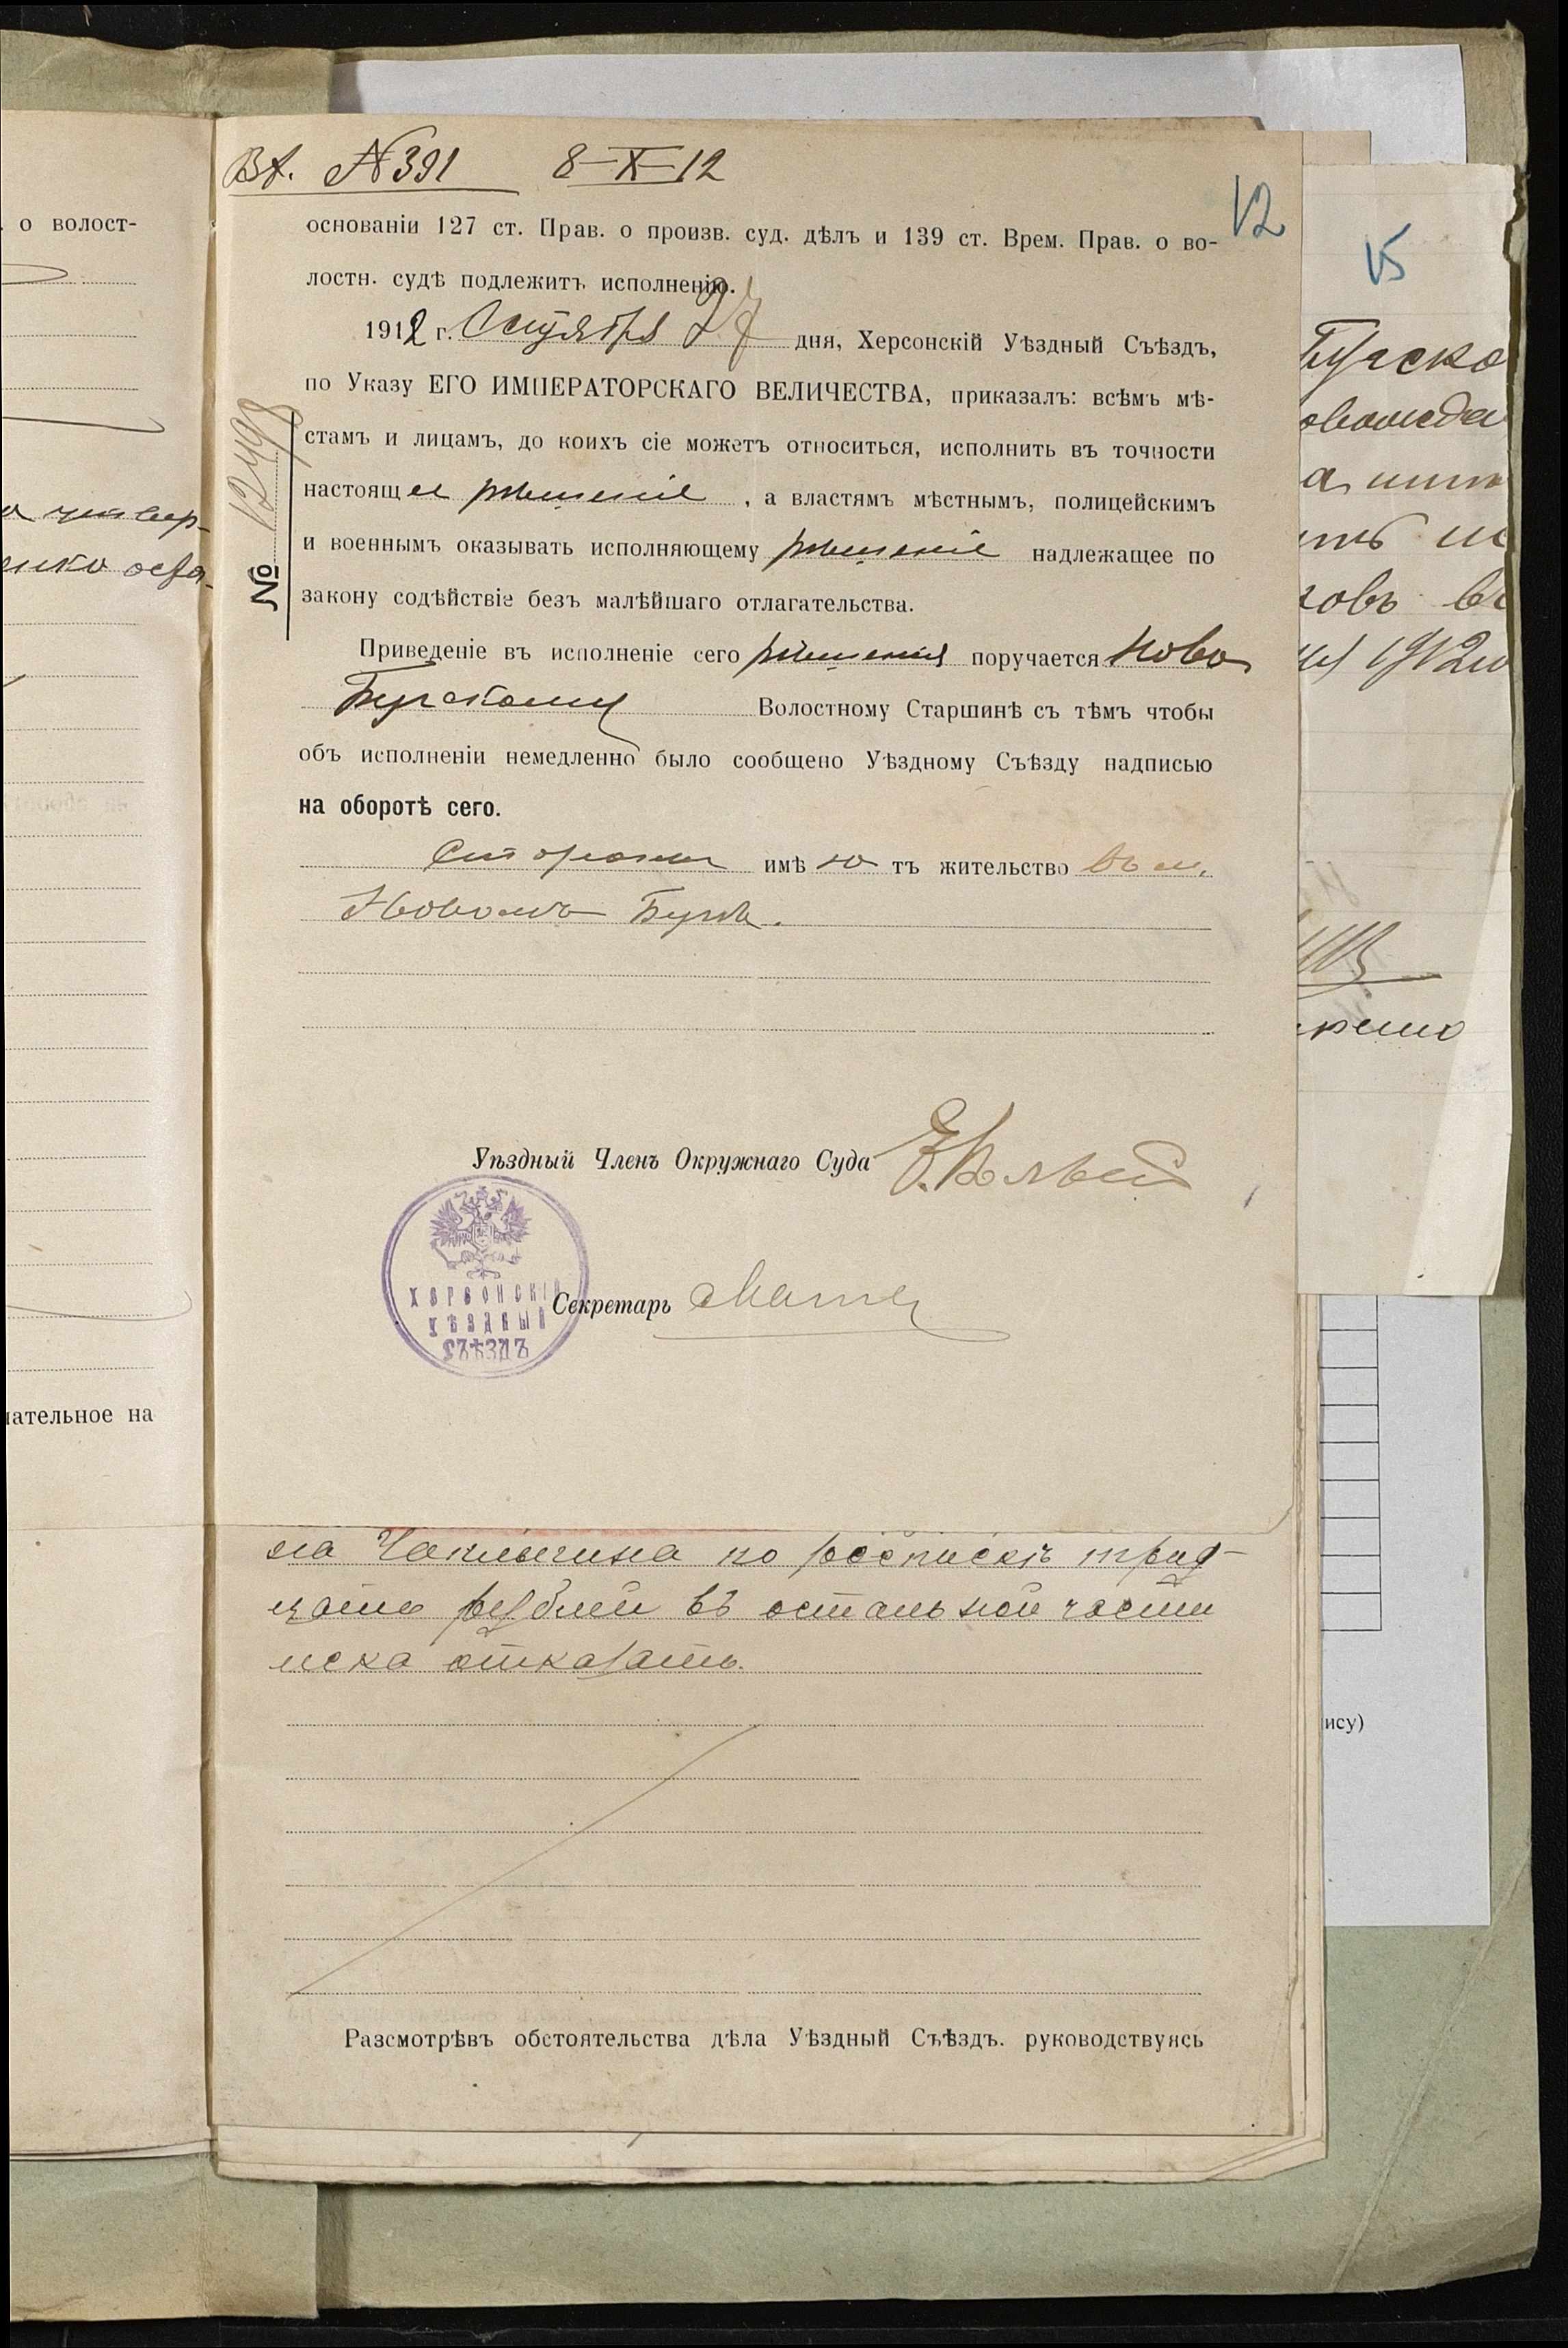 Вх. №391 8-X-12
12
основаніи 127 ст. Прав. о произв. суд. дѣлъ и 139 ст. Врем. Прав. о во-
лостн. судѣ подлежитъ исполненію.
1912 г. Сентября 27 дня, Херсонскій Уѣздный Съѣздъ,
по Указу ЕГО ИМПЕРАТОРСКАГО ВЕЛИЧЕСТВА, приказалъ: всѣмъ мѣ-
стамъ и лицамъ, до коихъ сіе можетъ относиться, исполнить въ точности
настоящее рѣшеніе, а властямъ мѣстнымъ, полицейскимъ
и военнымъ оказывать исполняющему рѣшеніе надлежащее по
закону содѣйствіе безъ малѣйшаго отлагательства.
№
Приведеніе въ исполненіе сего рѣшенія поручается Ново
Бугскому Волостному Старшинѣ съ тѣмъ чтобы
объ исполненіи немедленно было сообщено Уѣздному Съѣзду надписью
на оборотѣ сего.
Стороны имѣютъ жительство въ м.
Новомъ Бугѣ.
Уѣздный Членъ Окружнаго Суда
Секретарь
ХЕРСОНСКІЙ
УѢЗДНЫЙ
СЪѢЗДЪ
на по роспискѣ трид-
цать рублей въ остальной части
иска отказать.
Разсмотрѣвъ обстоятельства дѣла Уѣздный Съѣздъ. руководствуясь
о волост-
ательное на
15
Бугско
1912
ису)